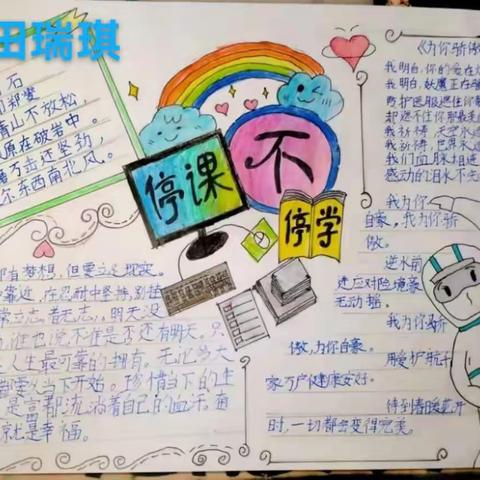 田瑞琪
石
郑燮
青山不放松
原在破岩中。
万击还坚劲，
尔东西南北风。
停课
不
停学
有梦想，但要立足现实。
靠近，在忍耐中坚持，别
常立志者无志，明天没
谁也说不准是否还有明天。只
人生最可靠的拥有。无论多大
都需从当下开始。珍惜当下的生
是言都流淌着自己的血汗。
就是幸福。
《为你骄傲
我明白，你的爱在
我明白，妖魔正在
防护医服遮住你
却遮不住你那最美
我祈祷，天空永远
我祈祷，世界永远
我们血脉相连
感动的泪水不先
我为你
自豪，我为你骄
傲。
逆水前
进应对险境豪
无动摇。
我为你骄
傲，为你自豪。
用爱护航千
家万户健康安好。
待到春暖花开
时，一切都会变得完美。